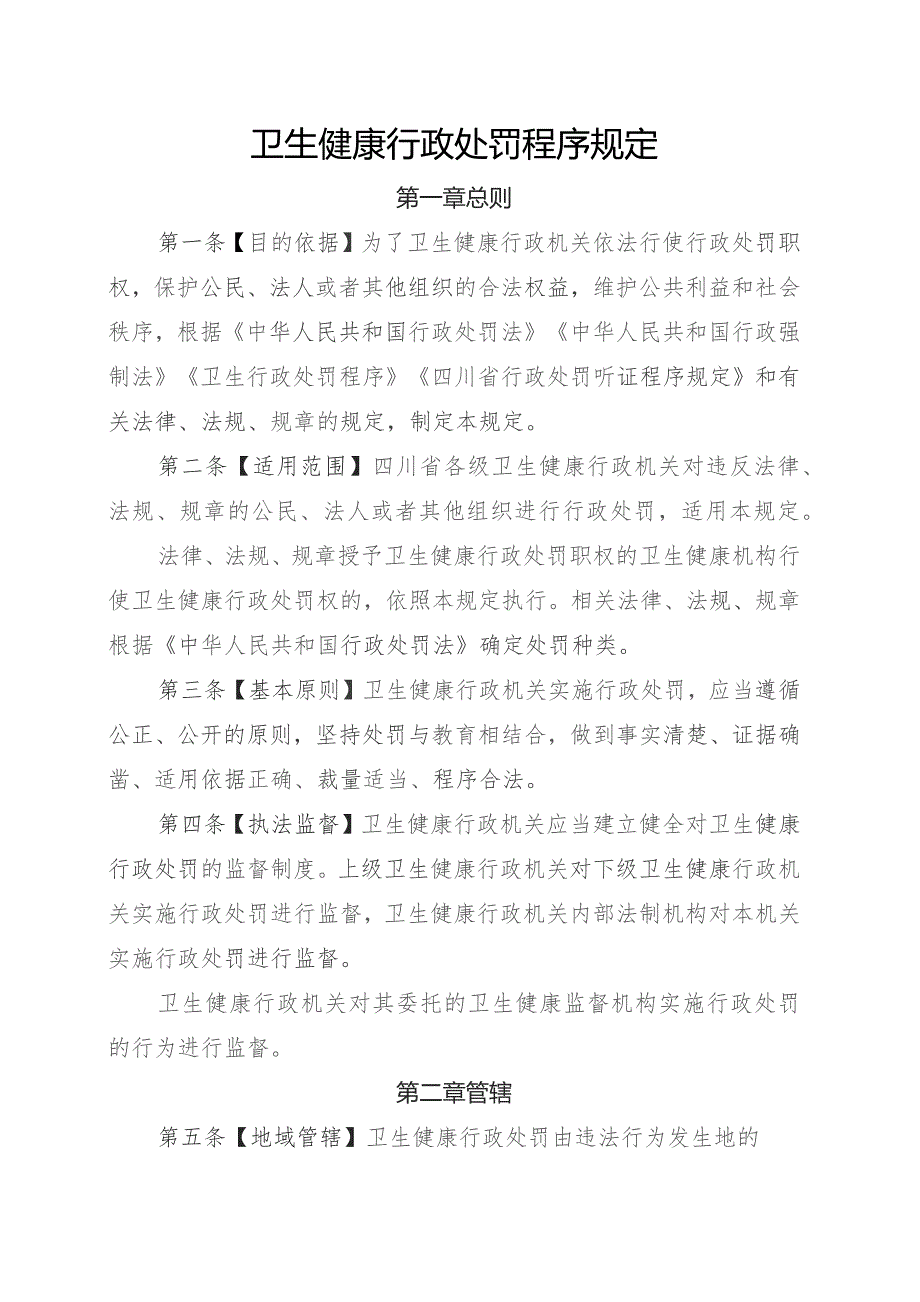 卫生健康行政处罚程序规定
第一章总则
第一条【目的依据】为了卫生健康行政机关依法行使行政处罚职
权，保护公民、法人或者其他组织的合法权益，维护公共利益和社会
秩序，根据《中华人民共和国行政处罚法》《中华人民共和国行政强
制法》《卫生行政处罚程序》《四川省行政处罚听证程序规定》和有
关法律、法规、规章的规定，制定本规定。
第二条【适用范围】四川省各级卫生健康行政机关对违反法律、
法规、规章的公民、法人或者其他组织进行行政处罚，适用本规定。
法律、法规、规章授予卫生健康行政处罚职权的卫生健康机构行
使卫生健康行政处罚权的，依照本规定执行。相关法律、法规、规章
根据《中华人民共和国行政处罚法》确定处罚种类。
第三条【基本原则】卫生健康行政机关实施行政处罚，应当遵循
公正、公开的原则，坚持处罚与教育相结合，做到事实清楚、证据确
凿、适用依据正确、裁量适当、程序合法。
第四条【执法监督】卫生健康行政机关应当建立健全对卫生健康
行政处罚的监督制度。上级卫生健康行政机关对下级卫生健康行政机
关实施行政处罚进行监督，卫生健康行政机关内部法制机构对本机关
实施行政处罚进行监督。
卫生健康行政机关对其委托的卫生健康监督机构实施行政处罚
的行为进行监督。
第二章管辖
第五条【地域管辖】卫生健康行政处罚由违法行为发生地的